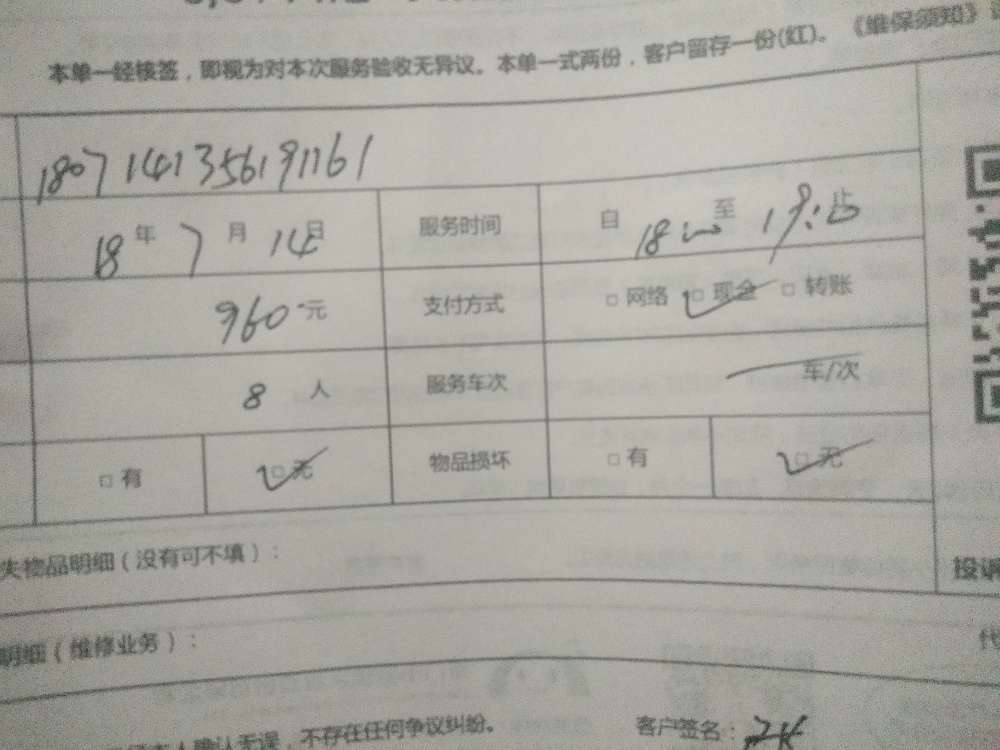 本单一经核签，即视为对本次服务验收无异议。本单一式两份，客户留存一份(红)。《维保须知》
1807141356191161
18年7月14日 服务时间 自18:00至19:00止
960元 支付方式 □网络 □现金 □转账
8人 服务车次 车/次
□有 □无 物品损坏 □有 □无
失物品明细（没有可不填）：
投诉
明细（维修业务）：
代
本人确认无误，不存在任何争议纠纷。 客户签名：